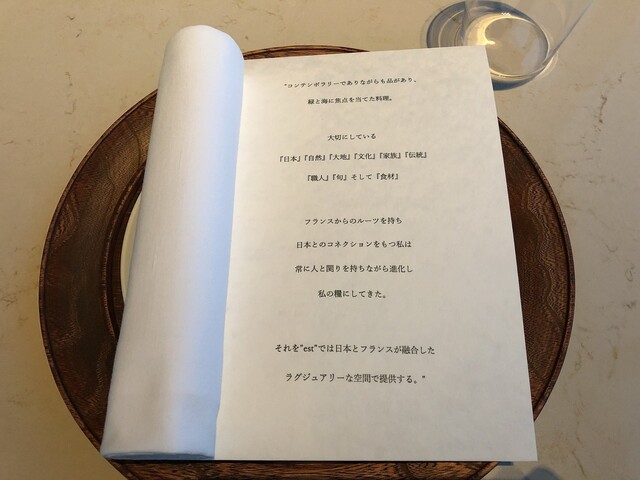 "コンテンポラリーでありながらも品があり、
緑と海に焦点を当てた料理。
大切にしている
『日本』『自然』『大地』『文化』『家族』『伝統』
『職人』『旬』そして『食材』
フランスからのルーツを持ち
日本とのコネクションをもつ私は
常に人と関りを持ちながら進化し
私の糧にしてきた。
それを"est"では日本とフランスが融合した
ラグジュアリーな空間で提供する。"